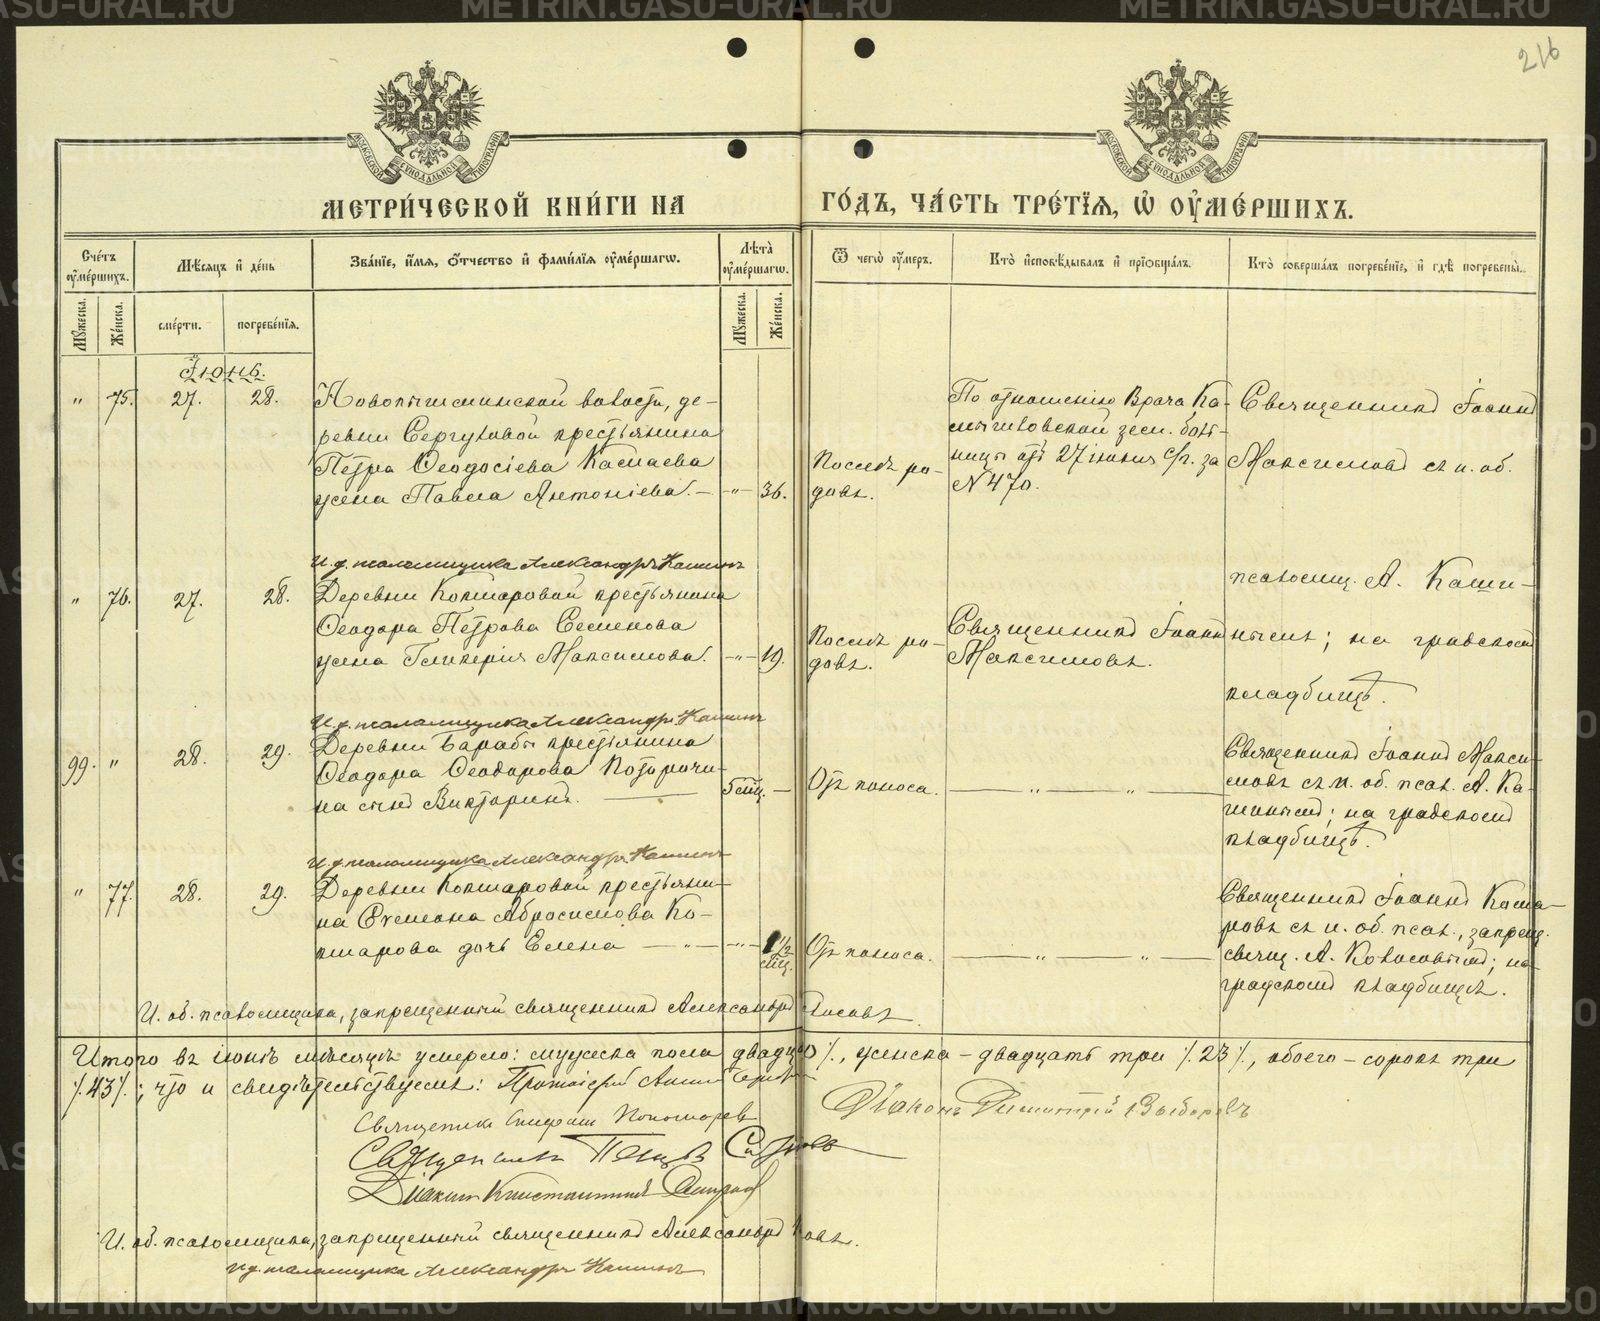 METRIKI.GASU-URAL.RU
216
МОСКОВСКОЙ СѴНОДАЛЬНОЙ ТИПОГРАФІИ
МЕТРИ́ЧЕСКОЙ КНИ́ГИ НА ГО́ДЪ, ЧА́СТЬ ТРЕ́ТІѦ, Ѡ҆ ОУ҆МЕ́РШИХЪ.
Сче́тъ оу҆ме́ршихъ.
Мꙋ́жеска.
Же́нска.
Мѣ́сяцъ и҆ де́нь
сме́рти.
погребе́нїѧ.
Зва́нїе, и҆́мѧ, ѻ҆́тчество и҆ фами́лїѧ оу҆ме́ршагѡ.
Лѣ́та оу҆ме́ршагѡ.
Мꙋ́жеска.
Же́нска.
Ѿ чегѡ̀ оу҆́меръ.
Кто̀ и҆сповѣ́дывалъ и҆ прїѡбща́лъ.
Кто̀ соверша́лъ погребе́нїе, и҆ гдѣ̀ погребены̀.
Іюнь.
" 75. 27. 28.
Новопышминской волости, де-
ревни Сергуловой крестьянина
Петра Ѳеодосіева Камаева
жена Павла Антоніева. — -"- 36.
Послѣ ро-
довъ.
По отношенію Врача Ка-
мышловской зем. боль-
ницы отъ 27 іюня с/г. за
№ 470.
Священникъ Іоаннъ
Максимовъ съ и. об.
псаломщ. А. Каши-
нымъ; на градскомъ
кладбищѣ.
И. д. псаломщика Александръ Кашинъ
" 76. 27. 28.
Деревни Кокшаровой крестьянина
Ѳеодора Петрова Семенова
жена Гликерія Максимова. -"- 19.
Послѣ ро-
довъ.
Священникъ Іоаннъ
Максимовъ.
И. д. псаломщика Александръ Кашинъ
99. " 28. 29.
Деревни Барабы крестьянина
Ѳеодора Ѳеодорова Поторочи-
на сынъ Викторинъ. — 5 мц. —
Отъ поноса. — " — " —
Священникъ Іоаннъ Макси-
мовъ съ и. об. псал. А. Ка-
шинымъ; на градскомъ
кладбищѣ.
И. д. псаломщика Александръ Кашинъ
" 77. 28. 29.
Деревни Кокшаровой крестьяни-
на Стефана Абросимова Ко-
кшарова дочь Елена — " — -"- 1 1/2 мц.
Отъ поноса. — " — " —
Священникъ Іоаннъ Кома-
ровъ съ и. об. псал., запрещ.
свящ. А. ; на
градскомъ кладбищѣ.
И. об. псаломщика, запрещенный священникъ Александръ
Итого въ іюнѣ мѣсяцѣ умерло: мужеска пола двадцать, женска — двадцать три /23/, обоего — сорокъ три
/43/; что и свидѣтельствуемъ: Протоіерей
Діаконъ Димитрій Выборовъ
Священникъ Пономаревъ
Священникъ Петръ
Діаконъ Константинъ
И. об. псаломщика, запрещенный священникъ Александръ
И. д. псаломщика Александръ Кашинъ